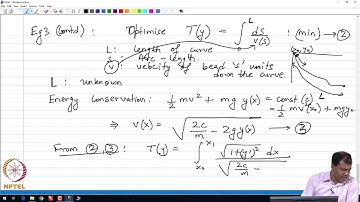 Eg 3 (contd): Optimise T(y) = ∫₀ᴸ ds/v(s) : (min) → ②
L : length of curve
s : Arc-length.
(x₀, y₀)
v : velocity of bead 's' units down the curve.
L
L : unknown
Energy conservation: ½ mv² + mg y(x) = const (c)
= ½ mv²(x₀) + mgy₀
⇒ v(x) = √(2c/m − 2gy(x)) → ③
From ②, ③ : T(y) = ∫ₓ₀ˣ¹ √(1+(y')²) dx / √(2c/m −
NPTEL